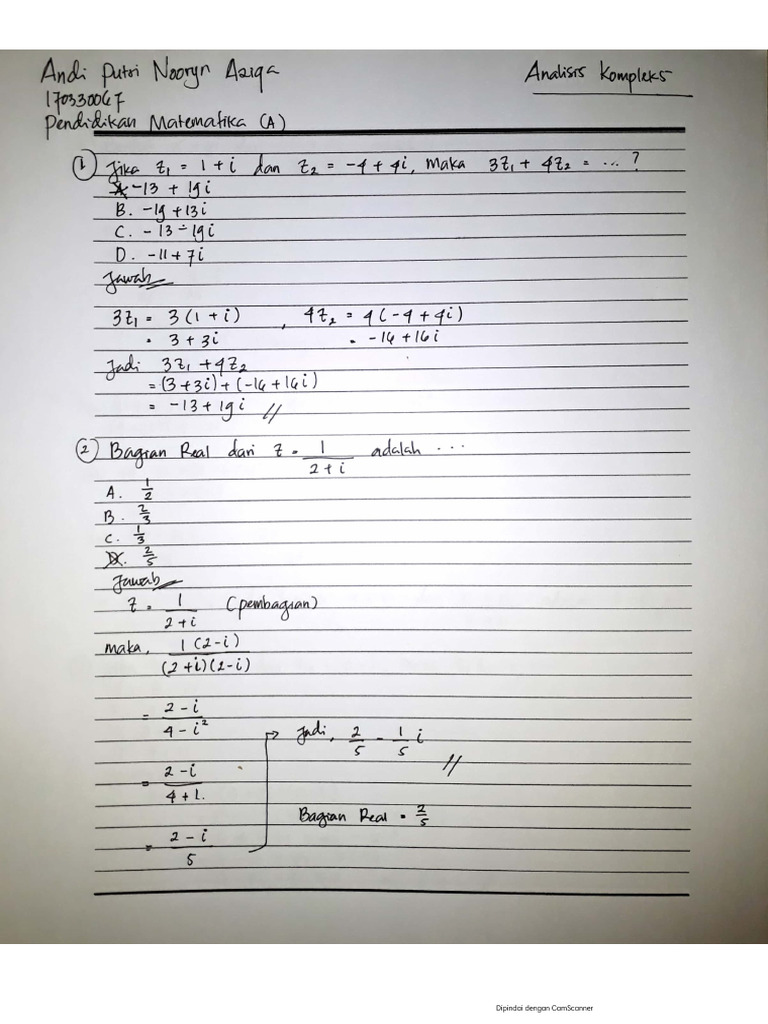 Andi Putri Nooryn Aziqa
Analisis Kompleks
170330067
Pendidikan Matematika (A)
1. Jika z₁ = 1 + i dan z₂ = -4 + 4i, maka 3z₁ + 4z₂ = ... ?
A. -13 + 19i
B. -19 + 13i
C. -13 - 19i
D. -11 + 7i
Jawab
3z₁ = 3(1 + i) , 4z₂ = 4(-4 + 4i)
= 3 + 3i = -16 + 16i
Jadi 3z₁ + 4z₂
= (3 + 3i) + (-16 + 16i)
= -13 + 19i //
2. Bagian Real dari z = 1/(2 + i) adalah ...
A. 1/2
B. 2/3
C. 1/3
D. 2/5
Jawab
z = 1/(2 + i) (pembagian)
maka, 1(2-i)/(2+i)(2-i)
= (2 - i)/(4 - i²)
Jadi, 2/5 - 1/5 i //
= (2 - i)/(4 + 1.)
Bagian Real = 2/5
= (2 - i)/5
Dipindai dengan CamScanner